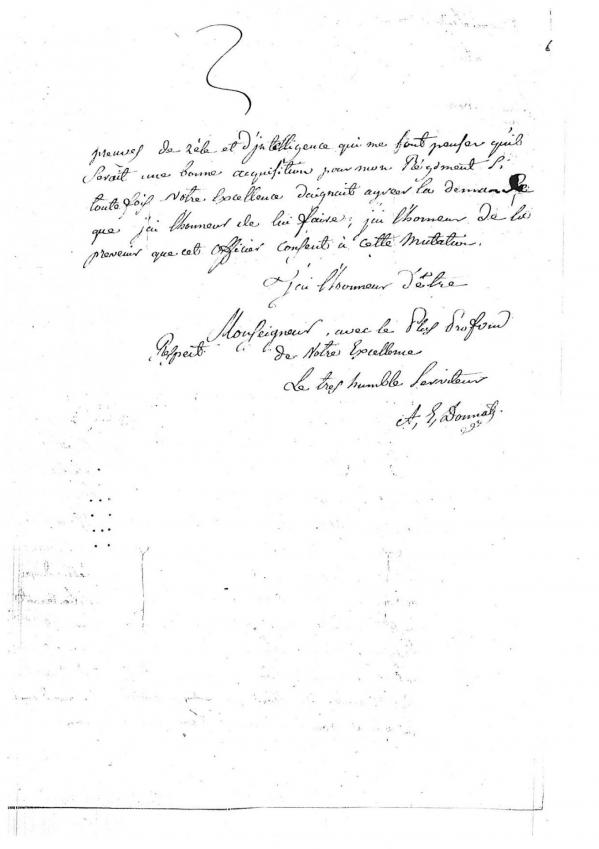 6
preuves de zéle et d'intelligence qui me font penser qu'ils
Serait une bonne acquisition pour mon Régiment Si
toute fois Notre Excellence daignait agréer la demande
que j'ai l'honneur de lui faire; j'ai l'honneur de la
prevenir que cet officier consent à cette Mutation.
J'ai l'honneur d'être
Monseigneur, avec le Plus Profond
Respect
de Notre Excellence
Le tres humble Serviteur
A, E, Donnat